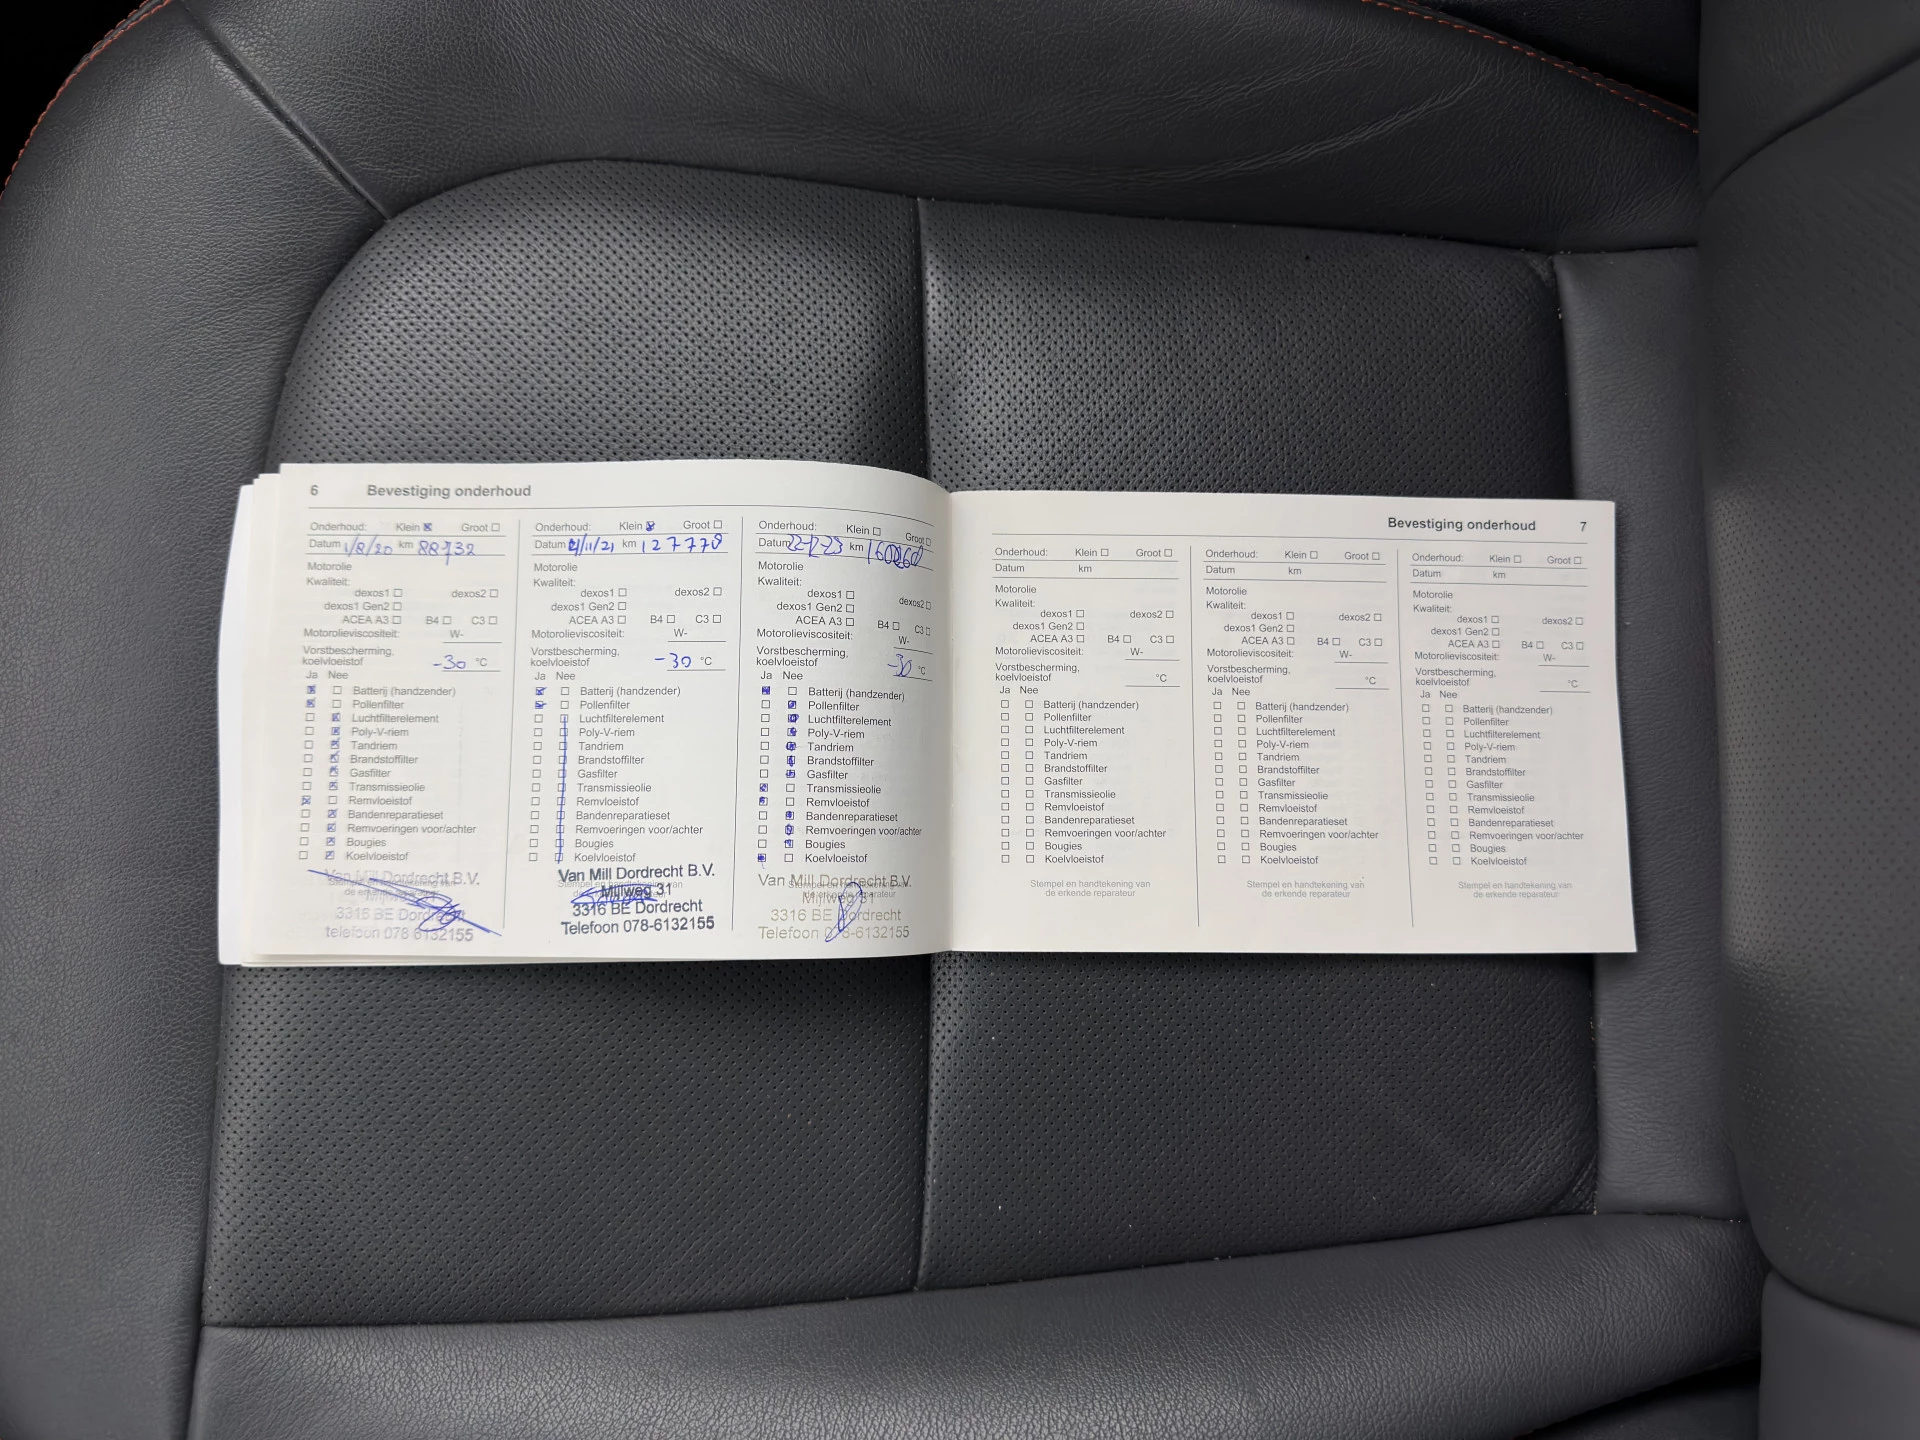 6 Bevestiging onderhoud
Onderhoud: Klein ☒ Groot ☐
Datum 1/8/20 km 88732
Motorolie
Kwaliteit:
dexos1 ☐ dexos2 ☐
dexos1 Gen2 ☐
ACEA A3 ☐ B4 ☐ C3 ☐
Motorolieviscositeit: W-
Vorstbescherming,
koelvloeistof -30 °C
Ja Nee
☒ ☐ Batterij (handzender)
☒ ☐ Pollenfilter
☐ ☒ Luchtfilterelement
☐ ☒ Poly-V-riem
☐ ☒ Tandriem
☐ ☒ Brandstoffilter
☐ ☒ Gasfilter
☐ ☒ Transmissieolie
☒ ☐ Remvloeistof
☐ ☒ Bandenreparatieset
☐ ☒ Remvoeringen voor/achter
☐ ☒ Bougies
☐ ☒ Koelvloeistof
Van Mill Dordrecht B.V.
3316 BE Dordrecht
telefoon 078 6132155
Onderhoud: Klein ☒ Groot ☐
Datum /11/21 km 127778
Motorolie
Kwaliteit:
dexos1 ☐ dexos2 ☐
dexos1 Gen2 ☐
ACEA A3 ☐ B4 ☐ C3 ☐
Motorolieviscositeit: W-
Vorstbescherming,
koelvloeistof -30 °C
Ja Nee
☒ ☐ Batterij (handzender)
☒ ☐ Pollenfilter
☐ ☐ Luchtfilterelement
☐ ☐ Poly-V-riem
☐ ☐ Tandriem
☐ ☐ Brandstoffilter
☐ ☐ Gasfilter
☐ ☐ Transmissieolie
☐ ☐ Remvloeistof
☐ ☐ Bandenreparatieset
☐ ☐ Remvoeringen voor/achter
☐ ☐ Bougies
☐ ☐ Koelvloeistof
Stempel en handtekening van
Van Mill Dordrecht B.V.
Mijlweg 31
3316 BE Dordrecht
Telefoon 078-6132155
Onderhoud: Klein ☐ Groot ☐
Datum km
Motorolie
Kwaliteit:
dexos1 ☐ dexos2 ☐
dexos1 Gen2 ☐
ACEA A3 ☐ B4 ☐ C3 ☐
Motorolieviscositeit: W-
Vorstbescherming,
koelvloeistof -30 °C
Ja Nee
☒ ☐ Batterij (handzender)
☐ ☒ Pollenfilter
☐ ☒ Luchtfilterelement
☐ ☒ Poly-V-riem
☐ ☒ Tandriem
☐ ☒ Brandstoffilter
☐ ☒ Gasfilter
☒ ☐ Transmissieolie
☒ ☐ Remvloeistof
☐ ☒ Bandenreparatieset
☐ ☒ Remvoeringen voor/achter
☐ ☒ Bougies
☒ ☐ Koelvloeistof
Stempel en handtekening van
de erkende reparateur
Van Mill Dordrecht B.V.
Mijlweg 31
3316 BE Dordrecht
Telefoon 078-6132155
Bevestiging onderhoud 7
Onderhoud: Klein ☐ Groot ☐
Datum km
Motorolie
Kwaliteit:
dexos1 ☐ dexos2 ☐
dexos1 Gen2 ☐
ACEA A3 ☐ B4 ☐ C3 ☐
Motorolieviscositeit: W-
Vorstbescherming,
koelvloeistof °C
Ja Nee
☐ ☐ Batterij (handzender)
☐ ☐ Pollenfilter
☐ ☐ Luchtfilterelement
☐ ☐ Poly-V-riem
☐ ☐ Tandriem
☐ ☐ Brandstoffilter
☐ ☐ Gasfilter
☐ ☐ Transmissieolie
☐ ☐ Remvloeistof
☐ ☐ Bandenreparatieset
☐ ☐ Remvoeringen voor/achter
☐ ☐ Bougies
☐ ☐ Koelvloeistof
Stempel en handtekening van
de erkende reparateur
Onderhoud: Klein ☐ Groot ☐
Datum km
Motorolie
Kwaliteit:
dexos1 ☐ dexos2 ☐
dexos1 Gen2 ☐
ACEA A3 ☐ B4 ☐ C3 ☐
Motorolieviscositeit: W-
Vorstbescherming,
koelvloeistof °C
Ja Nee
☐ ☐ Batterij (handzender)
☐ ☐ Pollenfilter
☐ ☐ Luchtfilterelement
☐ ☐ Poly-V-riem
☐ ☐ Tandriem
☐ ☐ Brandstoffilter
☐ ☐ Gasfilter
☐ ☐ Transmissieolie
☐ ☐ Remvloeistof
☐ ☐ Bandenreparatieset
☐ ☐ Remvoeringen voor/achter
☐ ☐ Bougies
☐ ☐ Koelvloeistof
Stempel en handtekening van
de erkende reparateur
Onderhoud: Klein ☐ Groot ☐
Datum km
Motorolie
Kwaliteit:
dexos1 ☐ dexos2 ☐
dexos1 Gen2 ☐
ACEA A3 ☐ B4 ☐ C3 ☐
Motorolieviscositeit: W-
Vorstbescherming,
koelvloeistof °C
Ja Nee
☐ ☐ Batterij (handzender)
☐ ☐ Pollenfilter
☐ ☐ Luchtfilterelement
☐ ☐ Poly-V-riem
☐ ☐ Tandriem
☐ ☐ Brandstoffilter
☐ ☐ Gasfilter
☐ ☐ Transmissieolie
☐ ☐ Remvloeistof
☐ ☐ Bandenreparatieset
☐ ☐ Remvoeringen voor/achter
☐ ☐ Bougies
☐ ☐ Koelvloeistof
Stempel en handtekening van
de erkende reparateur